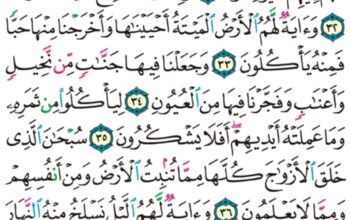 ٣٢ وَءَايَةٌ لَّهُمُ ٱلْأَرْضُ ٱلْمَيْتَةُ أَحْيَيْنَٰهَا وَأَخْرَجْنَا مِنْهَا حَبًّا
فَمِنْهُ يَأْكُلُونَ ٣٣ وَجَعَلْنَا فِيهَا جَنَّٰتٍ مِّن نَّخِيلٍ
وَأَعْنَٰبٍ وَفَجَّرْنَا فِيهَا مِنَ ٱلْعُيُونِ ٣٤ لِيَأْكُلُوا۟ مِن ثَمَرِهِۦ
وَمَا عَمِلَتْهُ أَيْدِيهِمْ أَفَلَا يَشْكُرُونَ ٣٥ سُبْحَٰنَ ٱلَّذِى
خَلَقَ ٱلْأَزْوَٰجَ كُلَّهَا مِمَّا تُنۢبِتُ ٱلْأَرْضُ وَمِنْ أَنفُسِهِمْ
وَمِمَّا لَا يَعْلَمُونَ ٣٦ وَءَايَةٌ لَّهُمُ ٱلَّيْلُ نَسْلَخُ مِنْهُ ٱلنَّهَارَ